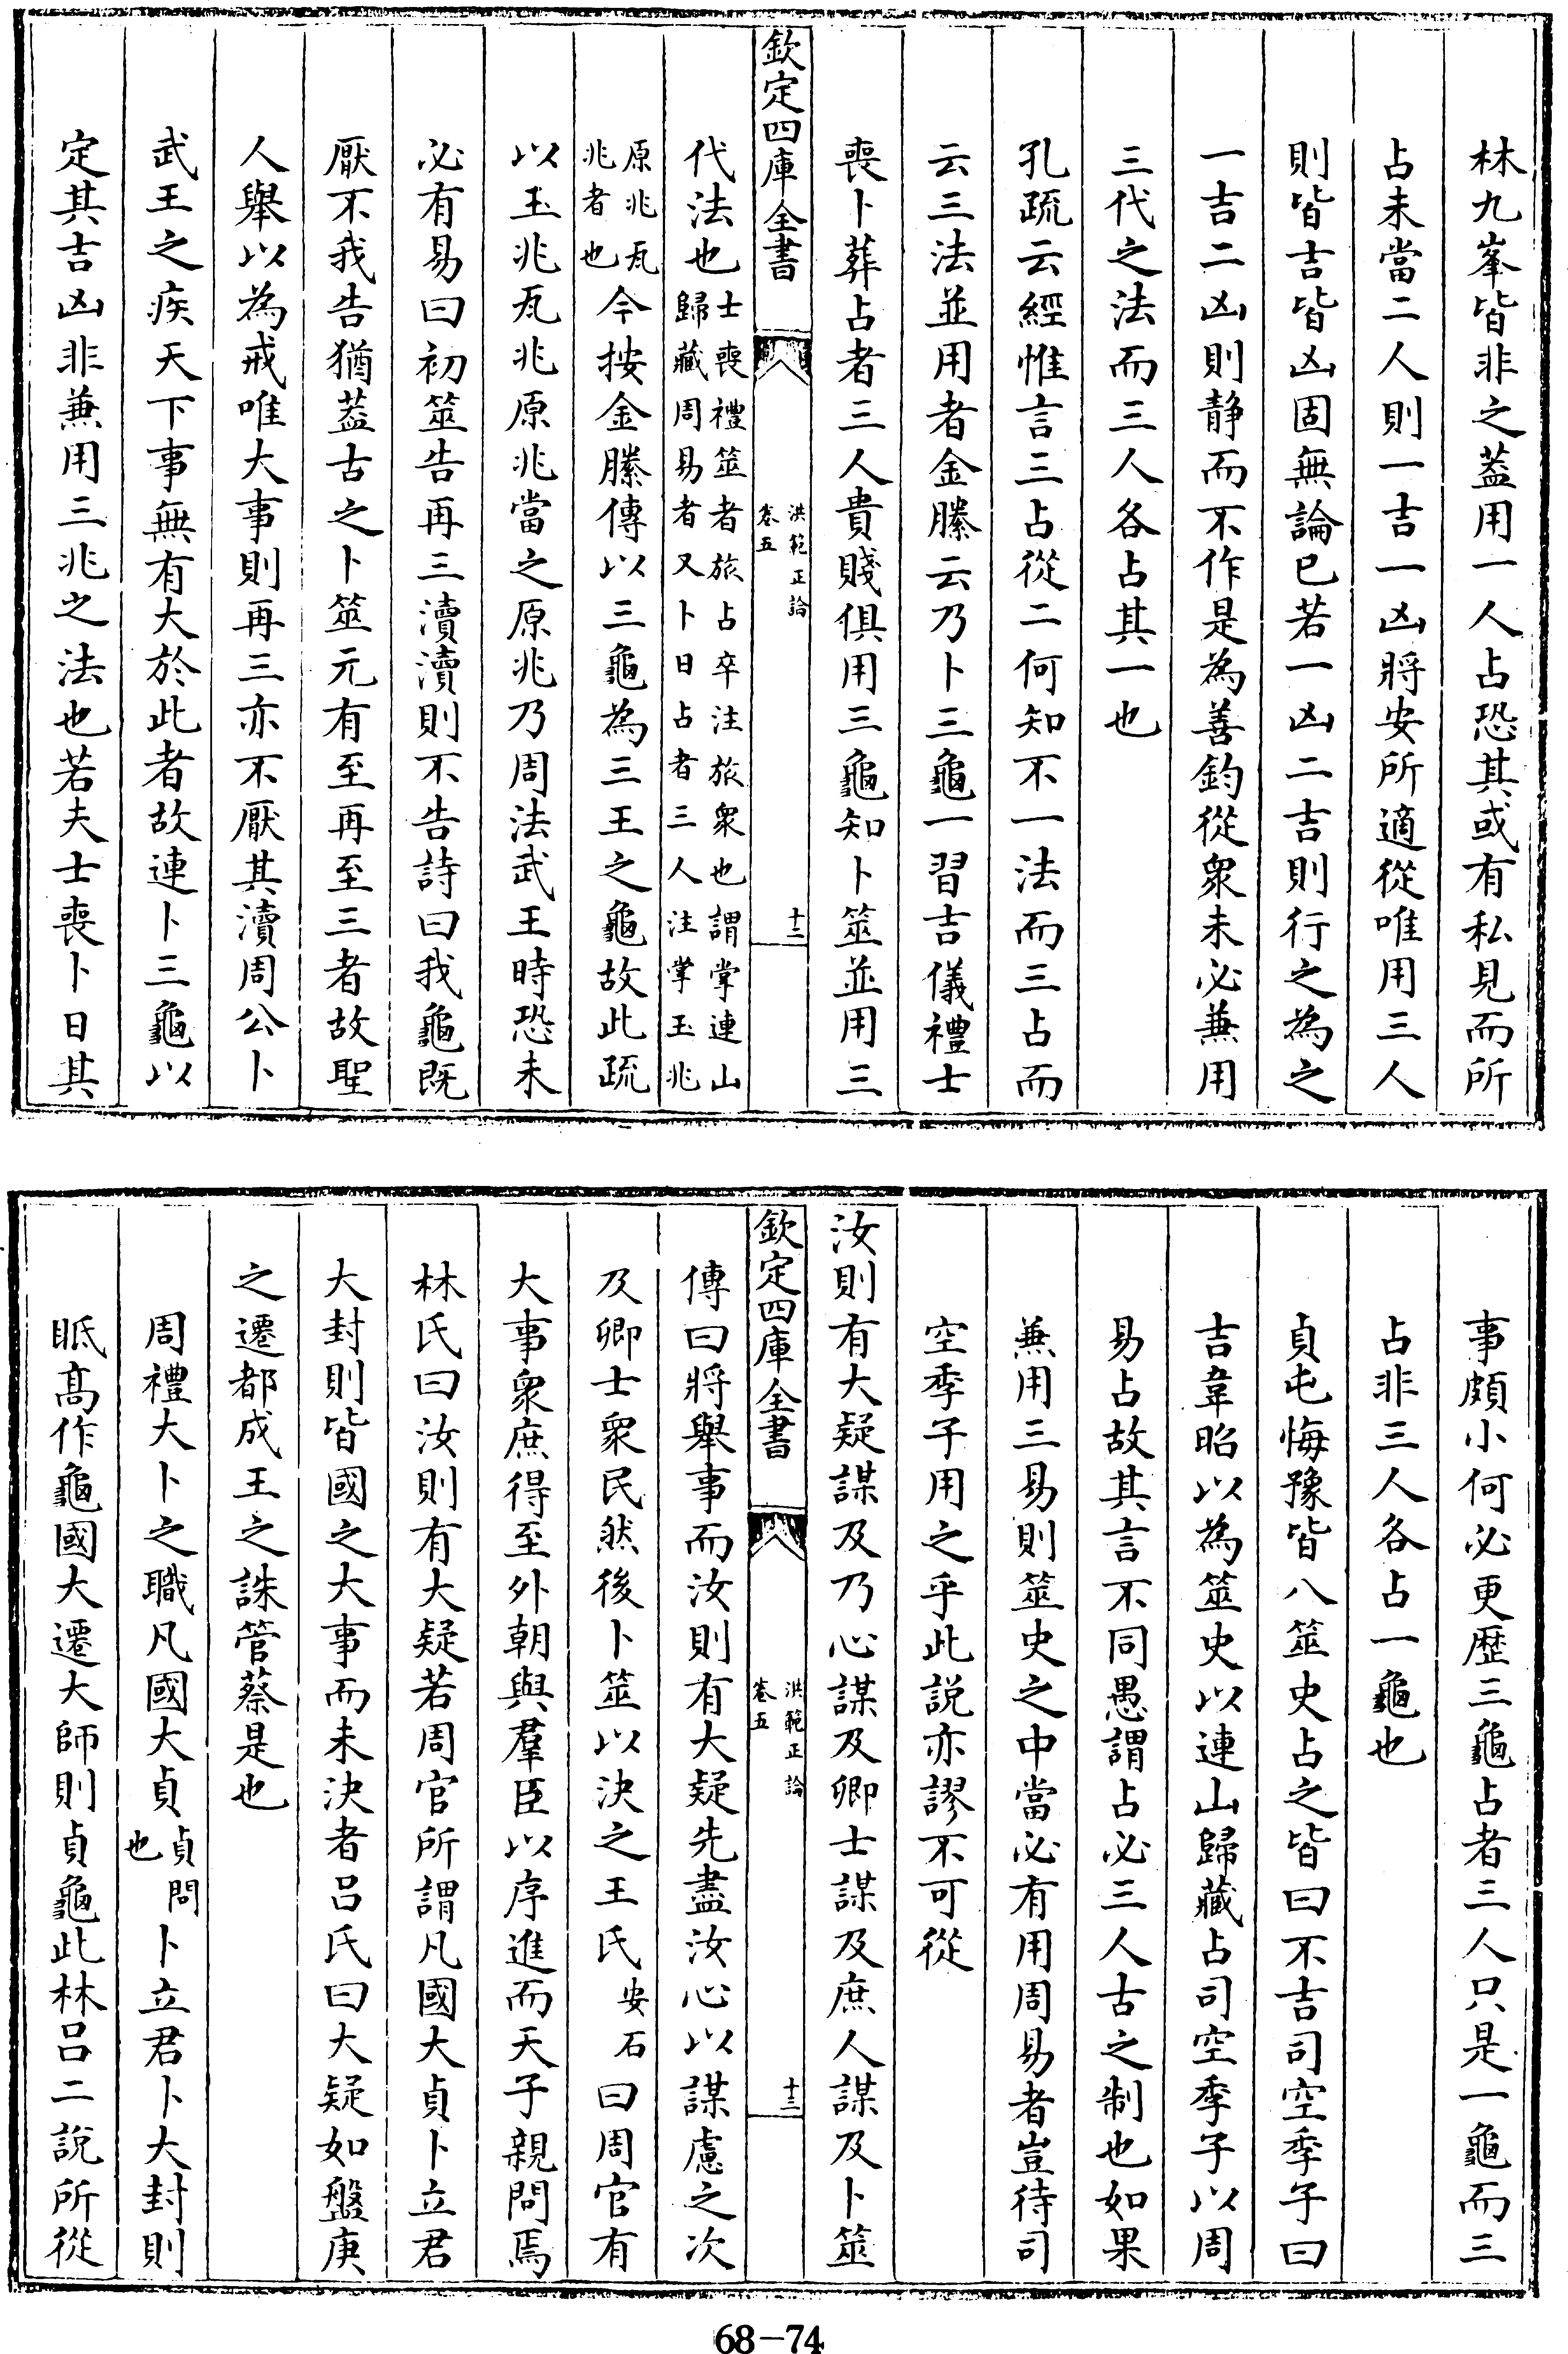 林九峯皆非之葢用一人占恐其或有私見而所
占未當二人則一吉一凶將安所適從唯用三人
則皆吉皆凶固無論已若一凶二吉則行之為之
一吉二凶則静而不作是為善鈞從衆未必兼用
三代之法而三人各占其一也
孔疏云經惟言三占從二何知不一法而三占而
云三法並用者金縢云乃卜三龜一習吉儀禮士
喪卜葬占者三人貴賤俱用三龜知卜筮並用三
欽定四庫全書
洪範正論
卷五
十二
代法也士喪禮筮者旅占卒注旅衆也謂掌連山歸藏周易者又卜日占者三人注掌玉兆
原兆瓦兆者也今按金縢傳以三龜為三王之龜故此疏
以玉兆瓦兆原兆當之原兆乃周法武王時恐未
必有易曰初筮告再三瀆瀆則不告詩曰我龜既
厭不我告猶葢古之卜筮元有至再至三者故聖
人舉以為戒唯大事則再三亦不厭其瀆周公卜
武王之疾天下事無有大於此者故連卜三龜以
定其吉凶非兼用三兆之法也若夫士喪卜日其
事頗小何必更歷三龜占者三人只是一龜而三
占非三人各占一龜也
貞屯悔豫皆八筮史占之皆曰不吉司空季子曰
吉韋昭以為筮史以連山歸藏占司空季子以周
易占故其言不同愚謂占必三人古之制也如果
兼用三易則筮史之中當必有用周易者豈待司
空季子用之乎此説亦謬不可從
汝則有大疑謀及乃心謀及卿士謀及庶人謀及卜筮
欽定四庫全書
洪範正論
卷五
十三
傳曰將舉事而汝則有大疑先盡汝心以謀慮之次
及卿士衆民然後卜筮以決之王氏安石曰周官有
大事衆庶得至外朝與羣臣以序進而天子親問焉
林氏曰汝則有大疑若周官所謂凡國大貞卜立君
大封則皆國之大事而未決者吕氏曰大疑如盤庚
之遷都成王之誅管蔡是也
周禮大卜之職凡國大貞貞問也卜立君卜大封則
眡髙作龜國大遷大師則貞龜此林吕二説所從
68-74